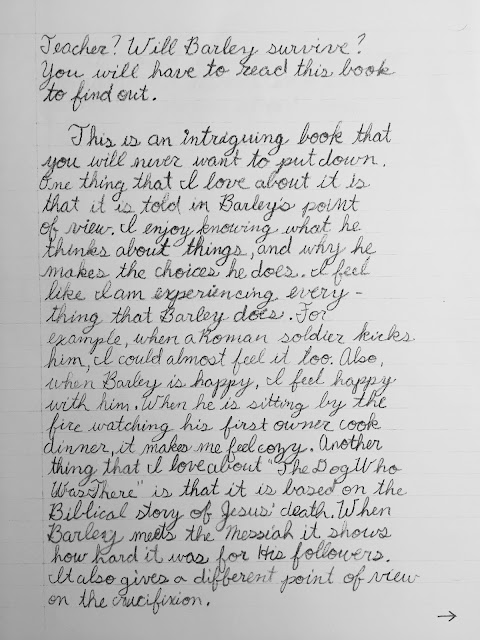 Teacher? Will Barley survive?
You will have to read this book
to find out.
This is an intriguing book that
you will never want to put down.
One thing that I love about it is
that it is told in Barley's point
of view. I enjoy knowing what he
thinks about things, and why he
makes the choices he does. I feel
like I am experiencing every-
thing that Barley does. For
example, when a Roman soldier kicks
him, I could almost feel it too. Also,
when Barley is happy, I feel happy
with him. When he is sitting by the
fire watching his first owner cook
dinner, it makes me feel cozy. Another
thing that I love about "The Dog Who
Was There" is that it is based on the
Biblical story of Jesus' death. When
Barley meets the Messiah it shows
how hard it was for His followers.
It also gives a different point of view
on the crucifixion.
→